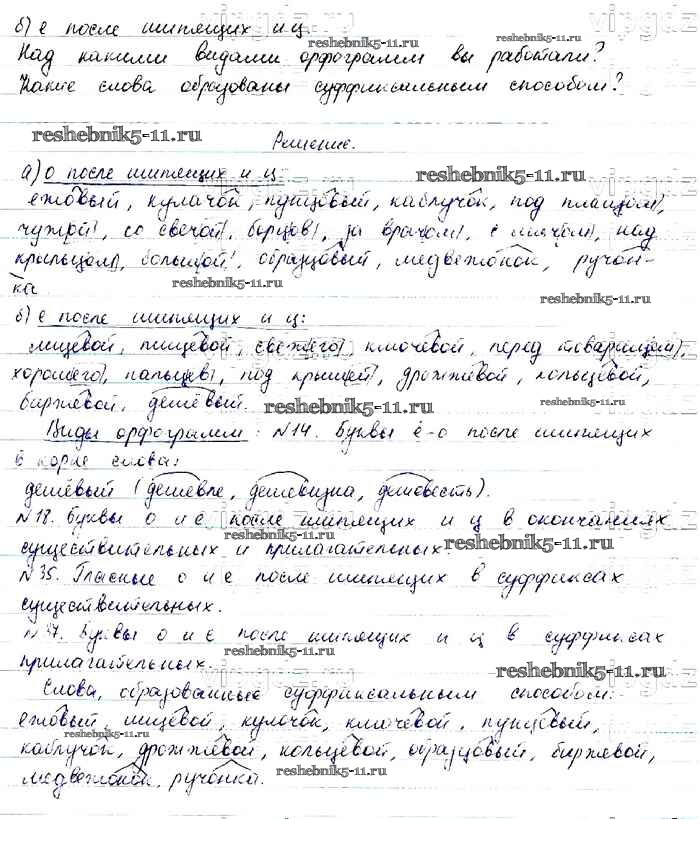 б) е после шипящих и ц.
Над какими видами орфограмм вы работали?
reshebnik5-11.ru
Какие слова образованы суффиксальным способом?
reshebnik5-11.ru
Решение.
reshebnik5-11.ru
а) о после шипящих и ц:
ежовый, кулачок, пунцовый, каблучок, под плащом,
чужой, со свечой, борцов, за врачом, с мячом, над
крыльцом, большой, образцовый, медвежонок, ручон-
ка
reshebnik5-11.ru
reshebnik5-11.ru
б) е после шипящих и ц:
лицевой, пищевой, свежего, ключевой, перед товарищем,
хорошего, пальцев, под крышей, дрожжевой, кольцевой,
биржевой, дешёвый.
reshebnik5-11.ru
reshebnik5-11.ru
Виды орфограмм: №14. Буквы ё-о после шипящих
в корне слова:
дешёвый (дешевле, дешевизна, дешеветь).
№18. Буквы о и е после шипящих и ц в окончаниях
существительных и прилагательных.
reshebnik5-11.ru
№35. Гласные о и е после шипящих в суффиксах
существительных.
№37. Буквы о и е после шипящих и ц в суффиксах
прилагательных.
reshebnik5-11.ru
reshebnik5-11.ru
Слова, образованные суффиксальным способом:
ежовый, лицевой, кулачок, ключевой, пунцовый,
reshebnik5-11.ru
каблучок, дрожжевой, кольцевой, образцовый, биржевой,
медвежонок, ручонка.
reshebnik5-11.ru